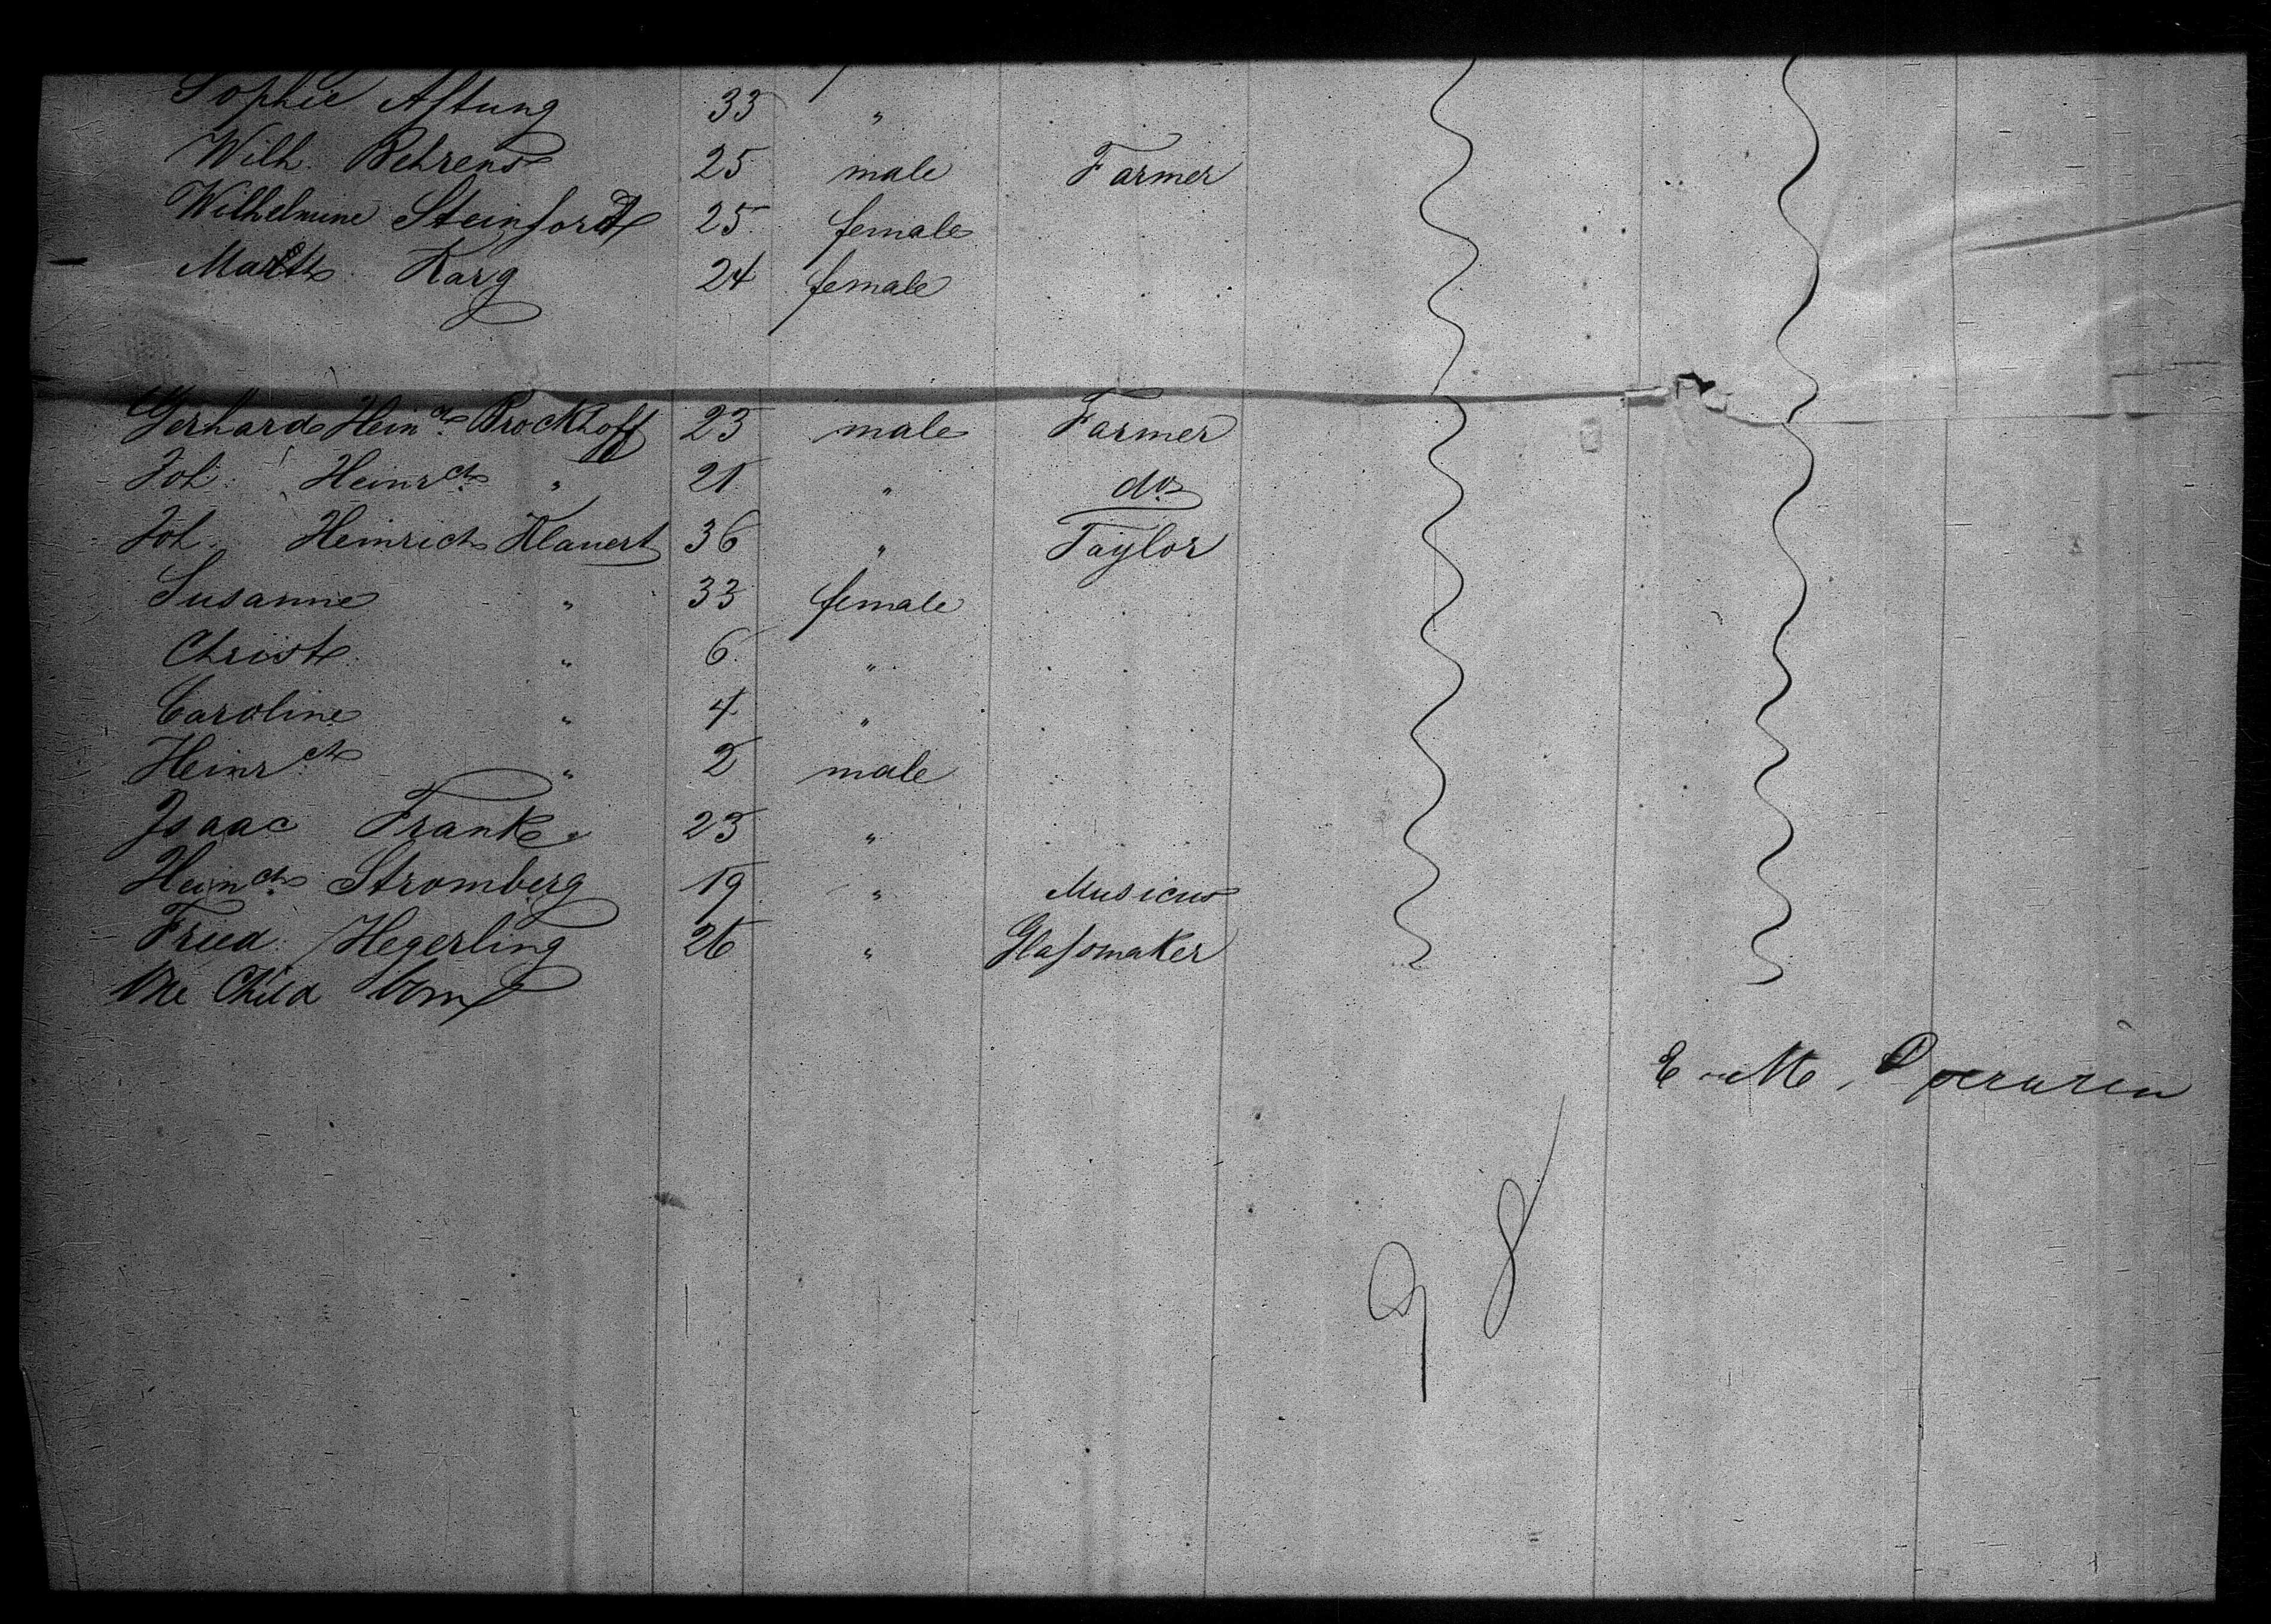 Sophie Astung 33 "
Wilh. Behrens 25 male Farmer
Wilhelmine Steinford 25 female
Marth. Karg 24 female
Gerhard Heinch Brockhoff 23 male Farmer
Joh. Heinrch " 21 " do
Joh. Heinrich Klauert 36 " Taylor
Susanne " 33 female
Christ. " 6 "
Caroline " 4 "
Heinrch " 2 male
Isaac Franke 23 "
Heinch Stromberg 19 " Musicus
Fried. Hegerling 26 " Glassmaker
One Child born
E. M.